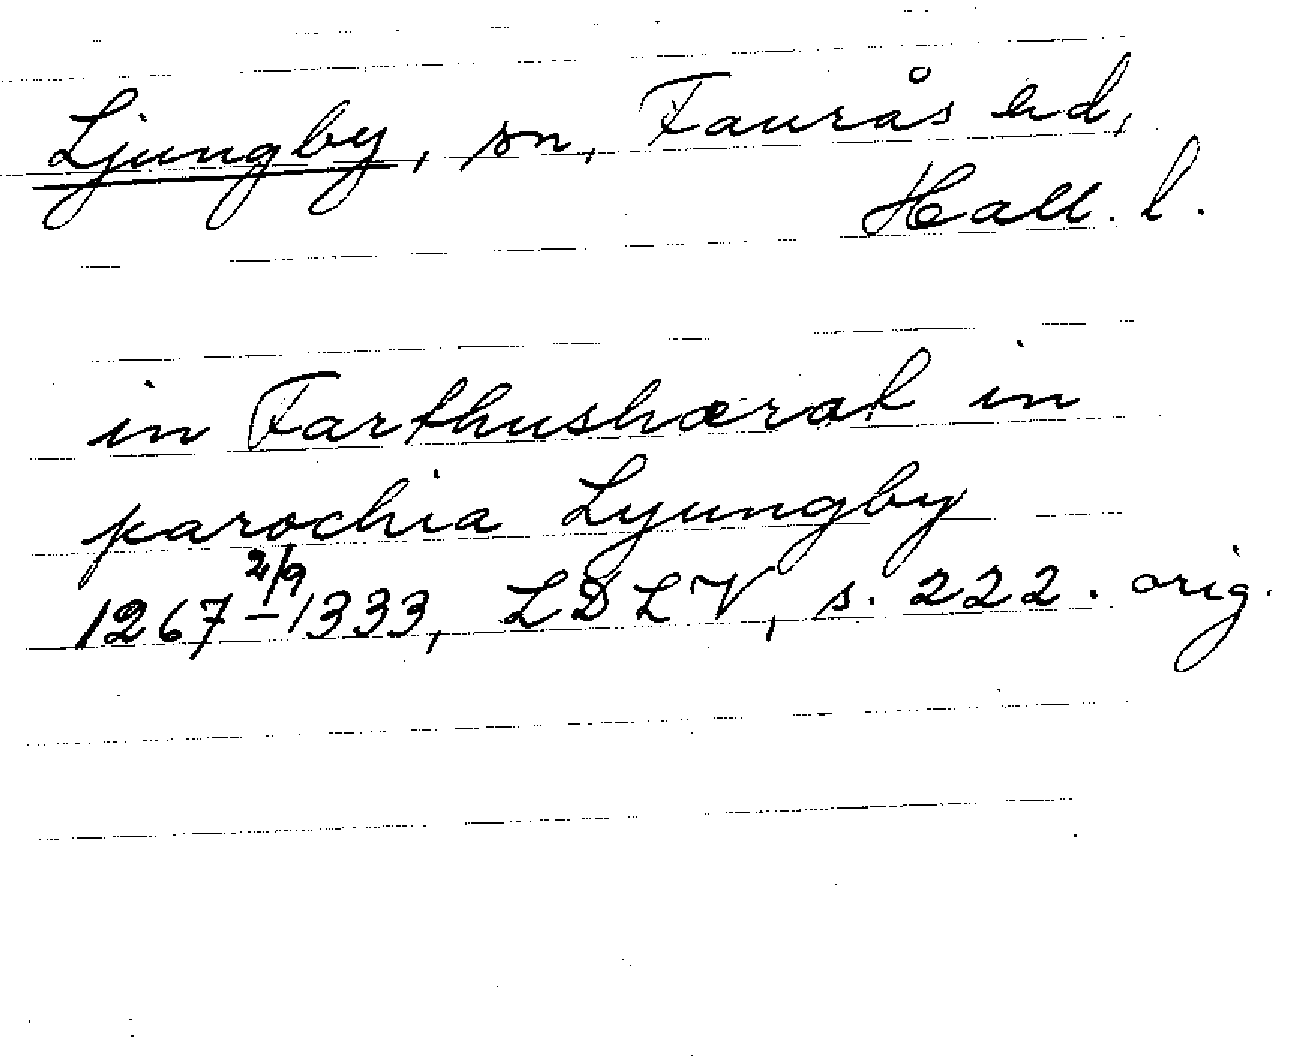 Ljungby, sn, Faurås hd,
Hall. l.
in Farthushæræt in
parochia Lyungby
1267 2/9 – 1333, LDLV, s. 222. orig.